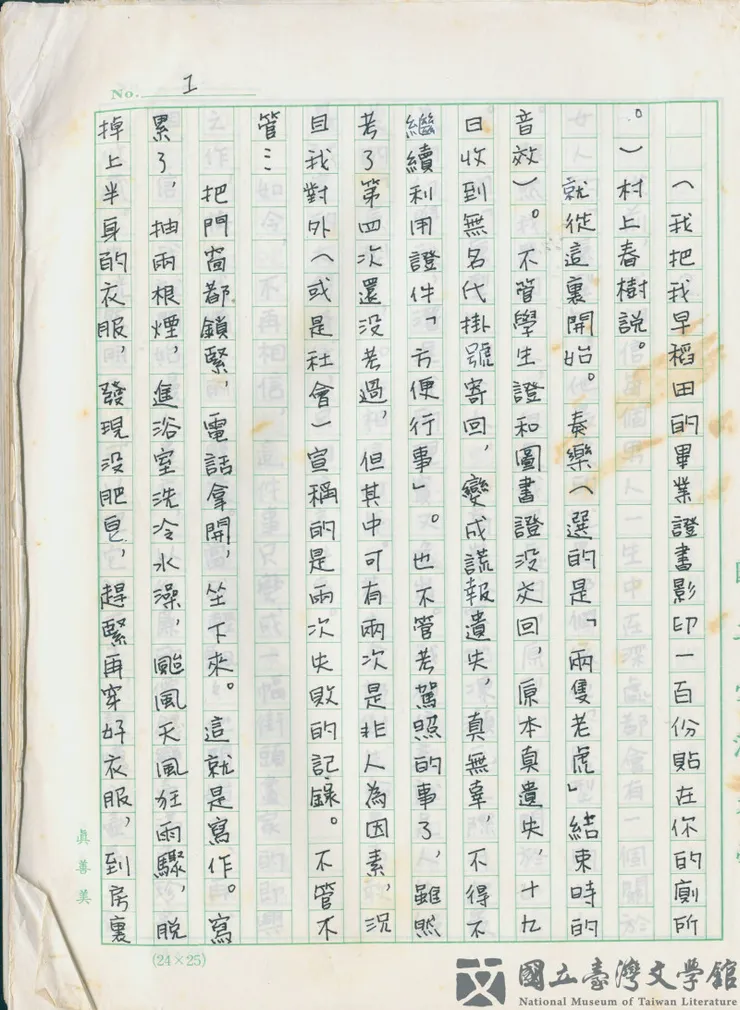 No. 1
(我把我早稻田的畢業證書影印一百份貼在你的廁所
。)村上春樹說。
就從這裏開始。奏樂(選的是「兩隻老虎」結束時的
音效)。不管學生證和圖書證沒交回,原本真遺失,十九
日收到無名代掛號寄回,變成謊報遺失,真無辜,不得不
繼續利用證件「方便行事」。也不管考駕照的事了,雖然
考了第四次還沒考過,但其中可有兩次是非人為因素,況
且我對外(或是社會)宣稱的是兩次失敗的記錄。不管不
管…
把門窗都鎖緊,電話拿開,坐下來。這就是寫作。寫
累了,抽兩根煙,進浴室洗冷水澡,颱風天風狂雨驟,脫
掉上半身的衣服,發現沒肥皂,趕緊再穿好衣服,到房裏
真善美
(24×25)
國立臺灣文學館
National Museum of Taiwan Literature